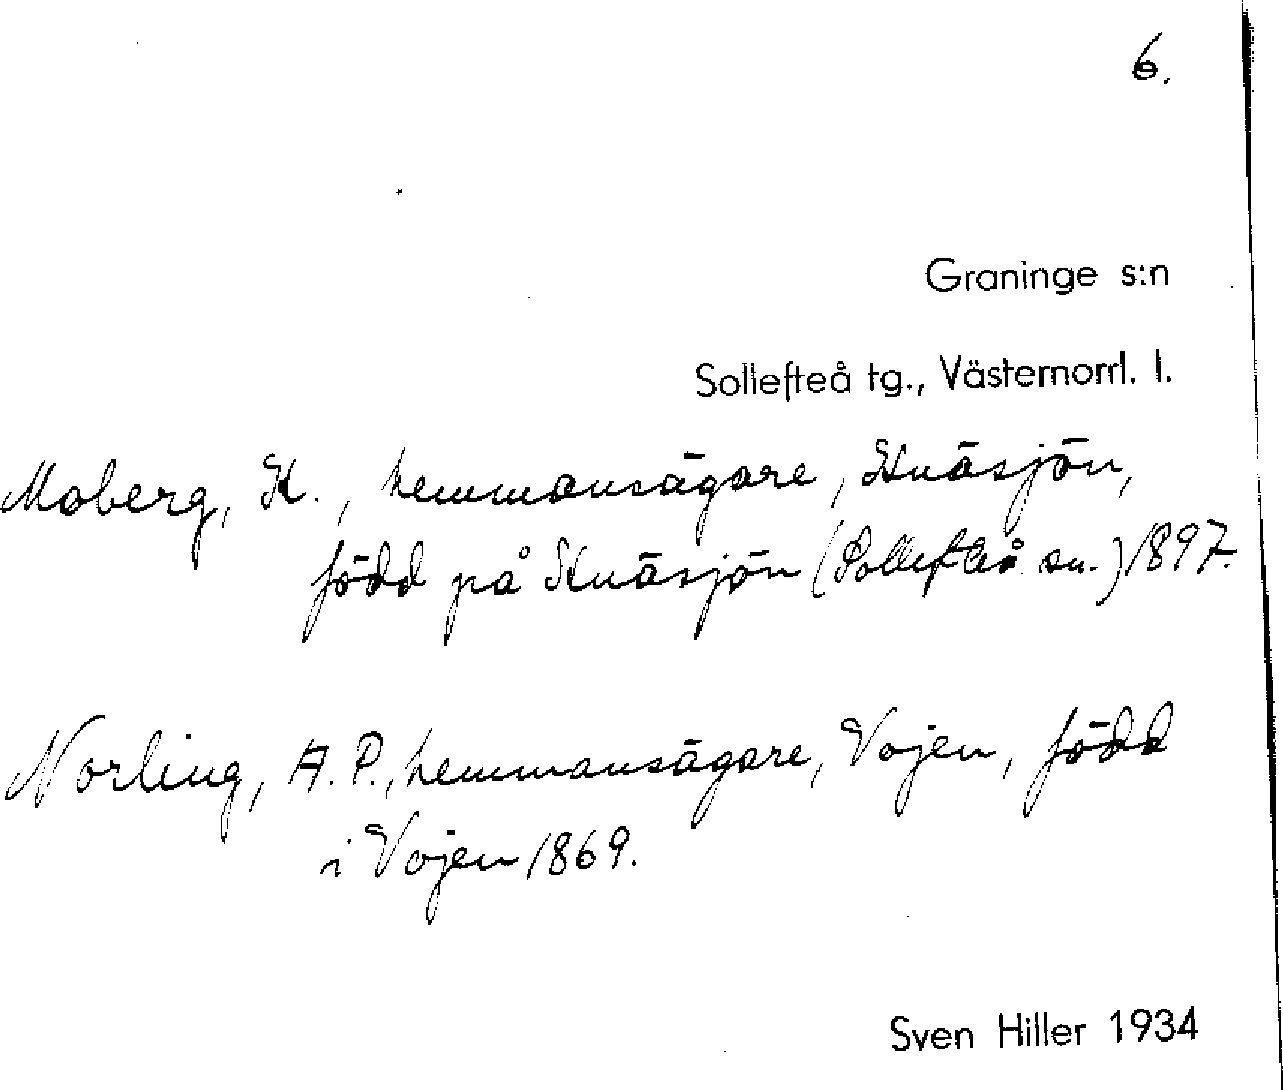 6.
Graninge s:n
Sollefteå tg., Västernorrl. l.
Moberg, K., hemmansägare, Knäsjön,
född på Knäsjön (Sollefteå sn.) 1897.
Norling, A. P., hemmansägare, Vojen, född
i Vojen 1869.
Sven Hiller 1934